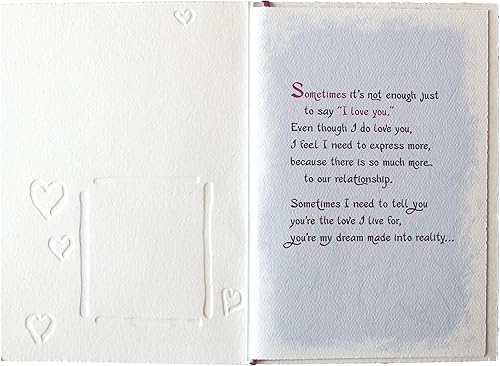 Sometimes it's not enough just
to say "I love you."
Even though I do love you,
I feel I need to express more,
because there is so much more...
to our relationship.
Sometimes I need to tell you
you're the love I live for,
you're my dream made into reality...